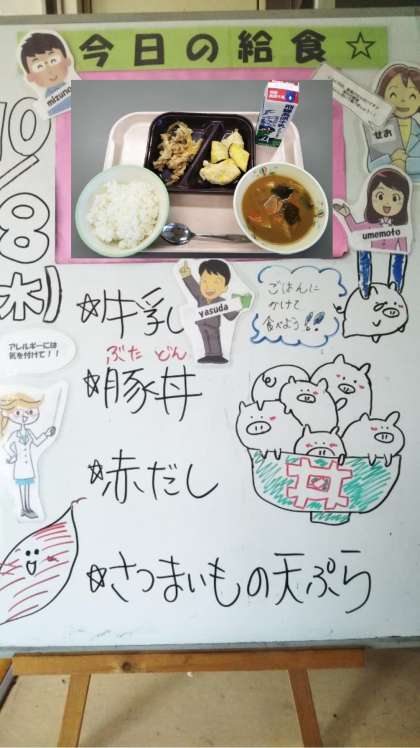 今日の給食☆
mizuno
せお
umemoto
10/8(木)
☆牛乳
yasuda
ごはんに
かけて
食べよう!!
アレルギーには
気を付けて！！
ぶた どん
☆豚丼
丼
☆赤だし
☆さつまいもの天ぷら